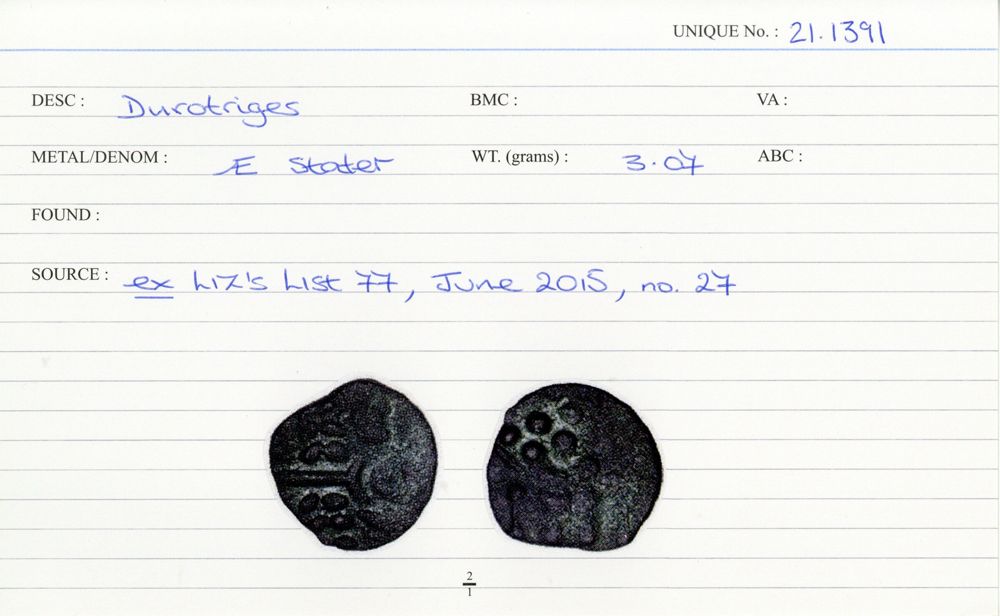 UNIQUE No. : 21.1391
DESC : Durotriges BMC : VA :
METAL/DENOM : Æ Stater WT. (grams) : 3.07 ABC :
FOUND :
SOURCE : ex Liz's List 77, June 2015, no. 27
2
1